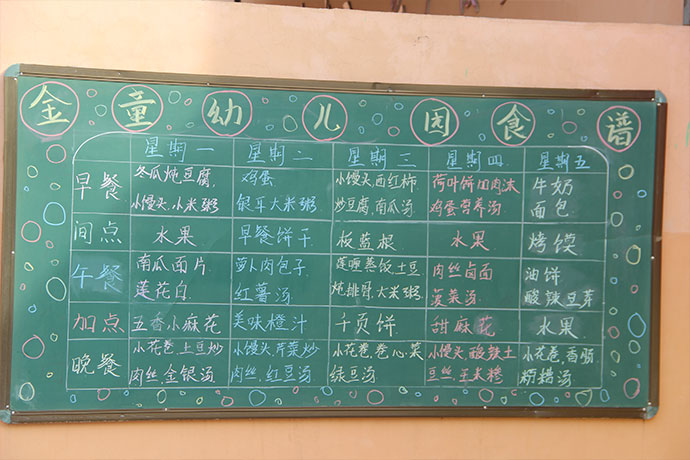 金童幼儿园食谱
星期一 星期二 星期三 星期四 星期五
早餐
冬瓜炖豆腐,
小馒头,小米粥
鸡蛋
银耳大米粥
小馒头,西红柿
炒豆腐,南瓜汤
荷叶饼回肉沫
鸡蛋营养汤
牛奶
面包
间点 水果 早餐饼干 板蓝根 水果 烤馍
午餐
南瓜面片
莲花白
萝卜肉包子
红薯汤
蒸饭,土豆
炖排骨,大米粥
肉丝卤面
菠菜汤
油饼
酸辣豆芽
加点 五香小麻花 美味橙汁 千页饼 甜麻花 水果
晚餐
小花卷,土豆炒
肉丝,金银汤
小馒头,芹菜炒
肉丝,红豆汤
小花卷,卷心菜
绿豆汤
小馒头,酸辣土
豆丝,玉米糁
小花卷,香肠
汤